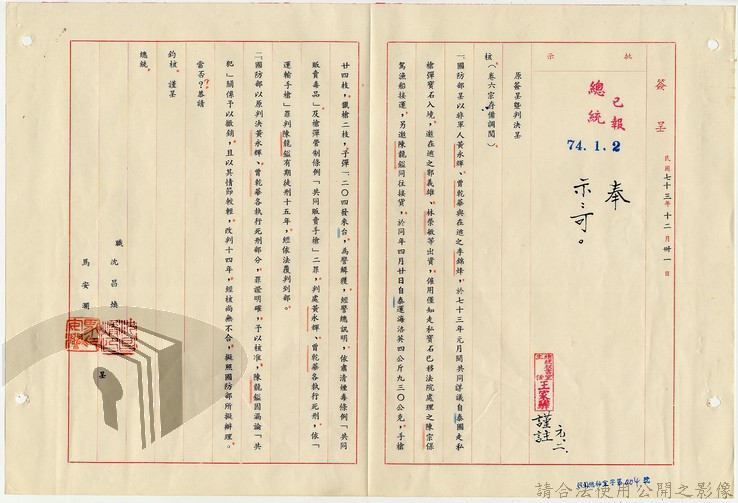 簽呈
民國七十三年十二月卅一日
批
示
已報
總統
74.1.2
奉
示:可。
王家驊
謹註
元、二、
原簽呈暨判決呈
核(卷六宗存備調閱)
一、國防部呈以非軍人黃永輝、曾乾華與在逃之李錦烽,於七十三年元月間共同謀議自泰國走私
槍彈寶石入境,邀在逃之郭義雄、林榮敏等出資,僱用僅知走私寶石已移法院處理之陳宗保
駕漁船接運,另邀陳龍鎰同往接貨,於同年四月廿日自泰運海洛英四公斤九三○公克,手槍
廿四枝,獵槍二枝,子彈一二○四發來台,為警緝獲,經警總訊明,依肅清煙毒條例「共同
販賣毒品」及槍彈管制條例「共同販賣手槍」二罪,判處黃永輝、曾乾華各執行死刑,依「
運輸手槍」罪判陳龍鎰有期徒刑十五年,經依法覆判到部。
二、國防部以原判決黃永輝、曾乾華各執行死刑部分,罪證明確,予以核准,陳龍鎰因漏論「共
犯」關係予以撤銷,且以其情節較輕,改判十四年,經核尚無不合,擬照國防部所擬辦理。
當否?恭請
鈞核 謹呈
總統
職 沈昌煥
馬安瀾
呈
請合法使用公開之影像